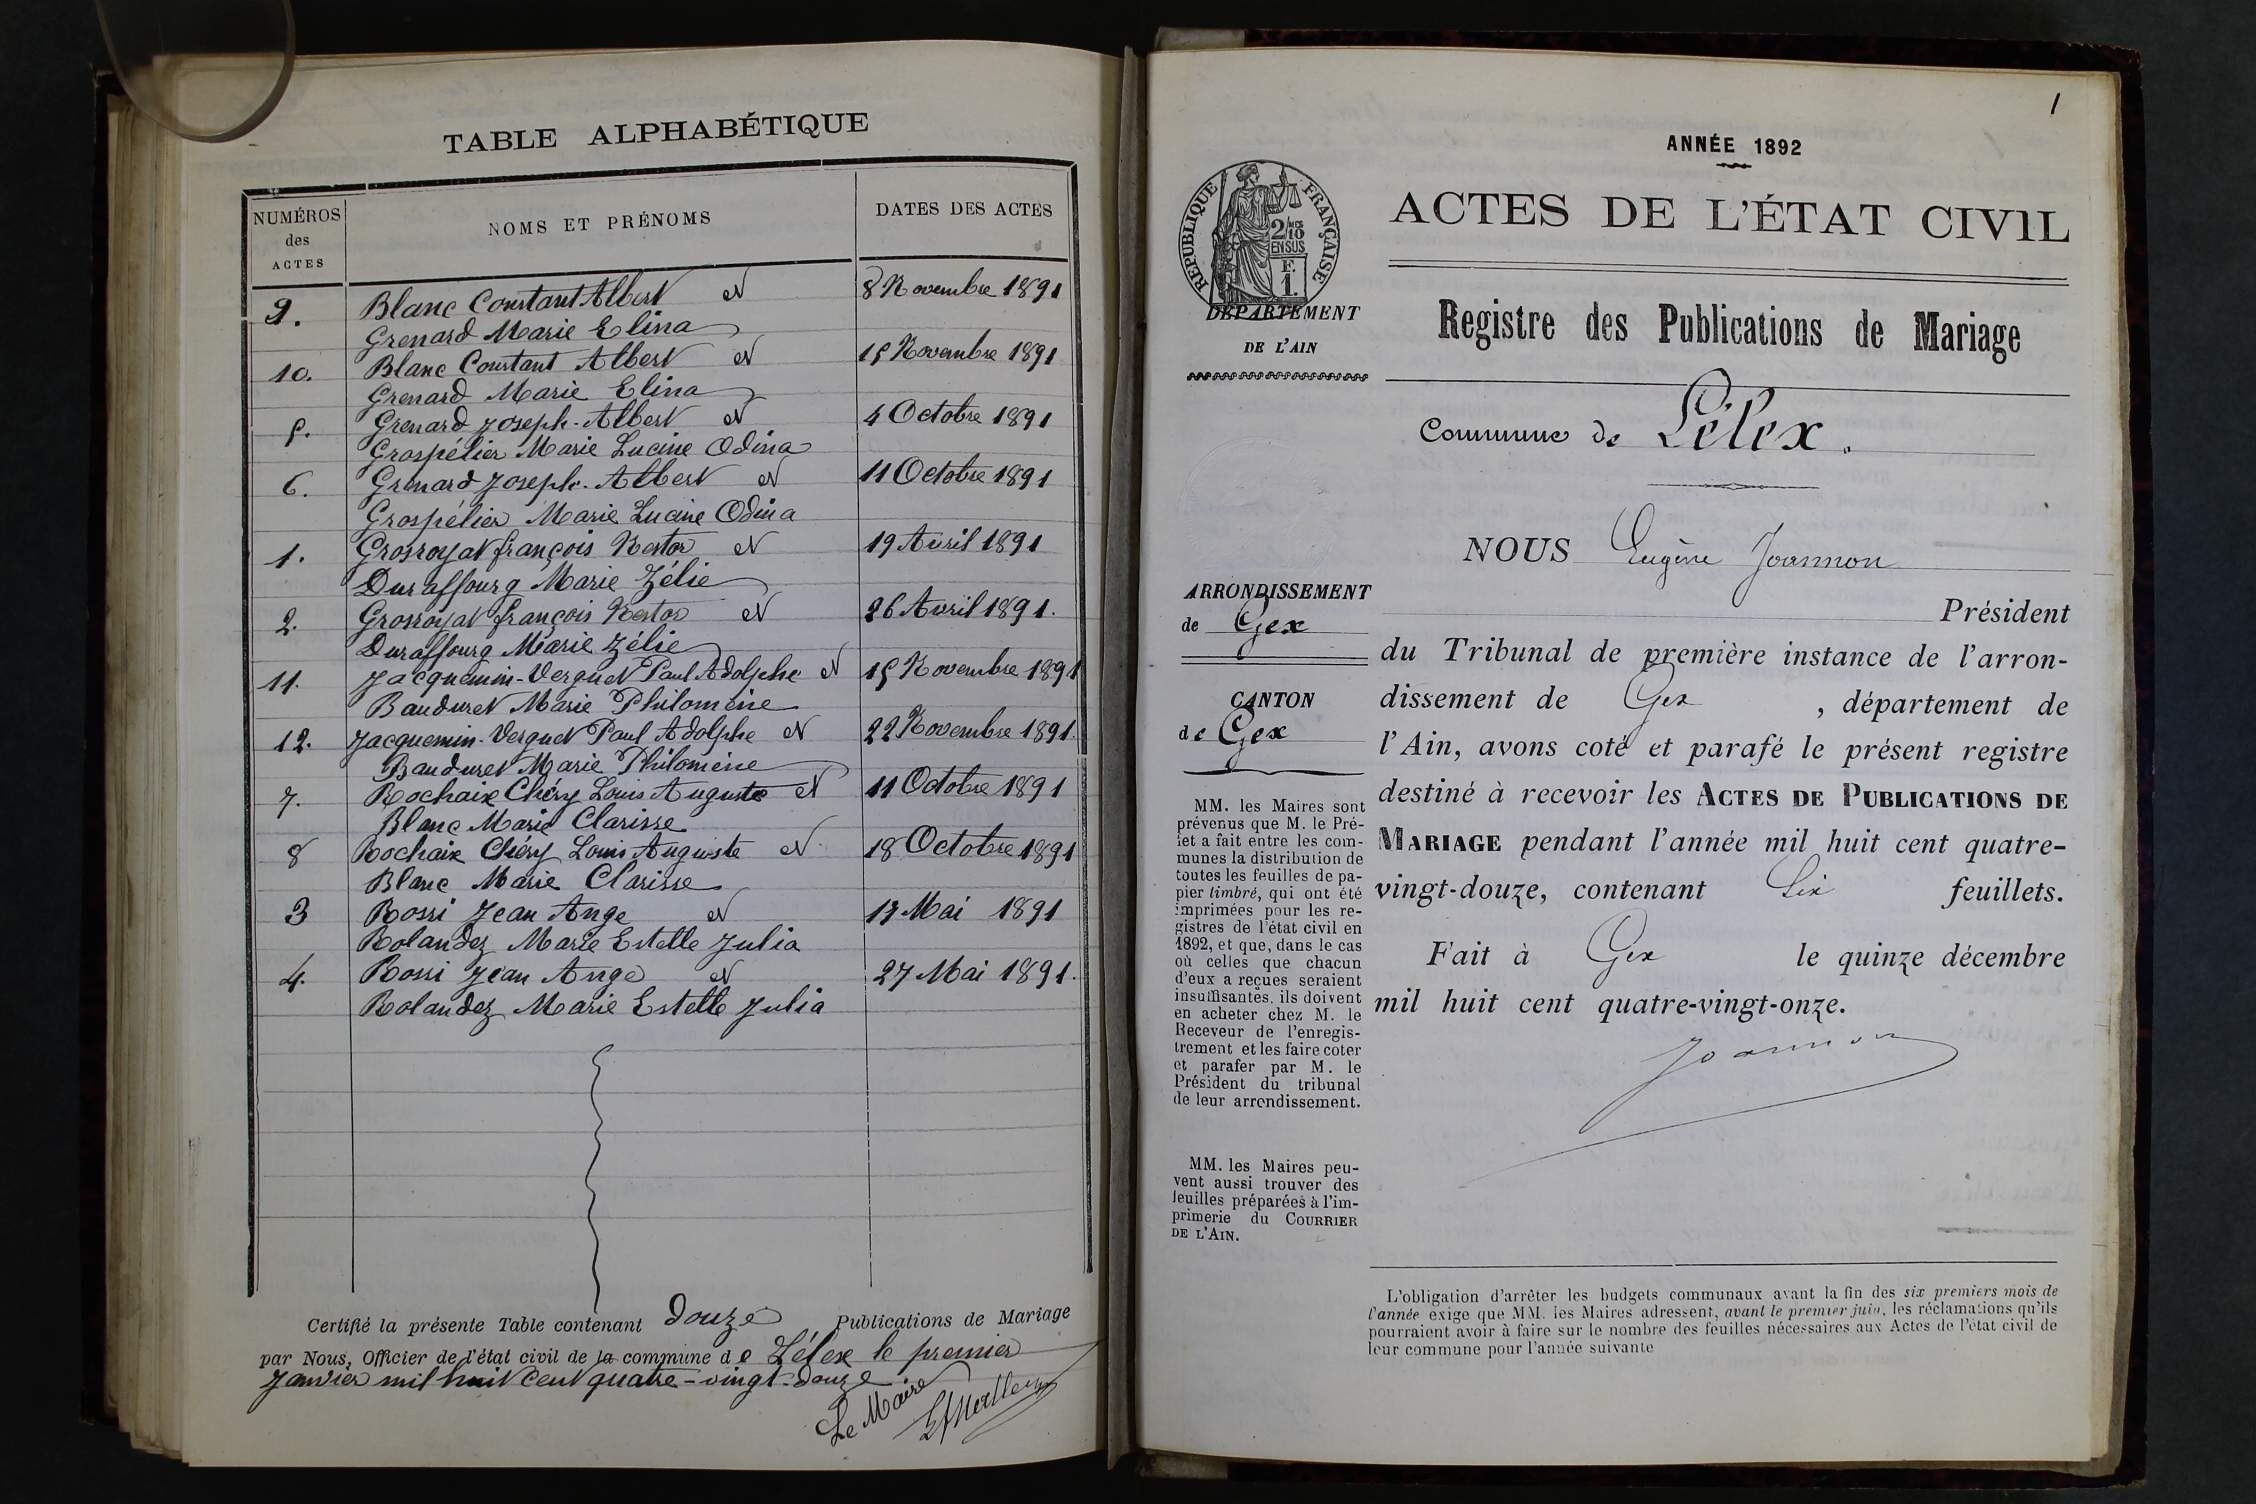 TABLE ALPHABÉTIQUE
NUMÉROS
des
ACTES
NOMS ET PRÉNOMS
DATES DES ACTES
9. Blanc Constant Albert et 8 Novembre 1891
Grenard Marie Elina
10. Blanc Constant Albert et 15 Novembre 1891
Grenard Marie Elina
5. Grenard Joseph-Albert et 4 Octobre 1891
Grospélier Marie Lucine Odina
6. Grenard Joseph-Albert et 11 Octobre 1891
Grospélier Marie Lucine Odina
1. Grosroyat françois Nestor et 19 Avril 1891
Duraffourg Marie Zélie
2. Grosroyat françois Nestor et 26 Avril 1891.
Duraffourg Marie Zélie
11. Jacquemin-Verguet Paul Adolphe et 15 Novembre 1891
Banduret Marie Philomène
12. Jacquemin-Verguet Paul Adolphe et 22 Novembre 1891.
Banduret Marie Philomène
7. Rochaix Chéry Louis Auguste et 11 Octobre 1891
Blanc Marie Clarisse
8 Rochaix Chéry Louis Auguste et 18 Octobre 1891
Blanc Marie Clarisse
3 Rossi Jean Ange et 17 Mai 1891
Rolandez Marie Estelle Julia
4. Rossi Jean Ange et 27 Mai 1891.
Rolandez Marie Estelle Julia
Certifié la présente Table contenant douze Publications de Mariage
par Nous, Officier de l'état civil de la commune de Lélex le premier
Janvier mil huit cent quatre-vingt-douze
Le Maire
1
ANNÉE 1892
ACTES DE L'ÉTAT CIVIL
RÉPUBLIQUE FRANÇAISE
2/10
EN SUS
F.
1.
DÉPARTEMENT
DE L'AIN
Registre des Publications de Mariage
Commune de Lélex.
NOUS Eugène Joannon
Président
du Tribunal de première instance de l'arron-
dissement de Gex, département de
l'Ain, avons coté et parafé le présent registre
destiné à recevoir les ACTES DE PUBLICATIONS DE
MARIAGE pendant l'année mil huit cent quatre-
vingt-douze, contenant Six feuillets.
Fait à Gex le quinze décembre
mil huit cent quatre-vingt-onze.
Joannon
ARRONDISSEMENT
de Gex
CANTON
de Gex
MM. les Maires sont
prévenus que M. le Pré-
fet a fait entre les com-
munes la distribution de
toutes les feuilles de pa-
pier timbré, qui ont été
imprimées pour les re-
gistres de l'état civil en
1892, et que, dans le cas
où celles que chacun
d'eux a reçues seraient
insuffisantes, ils doivent
en acheter chez M. le
Receveur de l'enregis-
trement et les faire coter
et parafer par M. le
Président du tribunal
de leur arrondissement.
MM. les Maires peu-
vent aussi trouver des
feuilles préparées à l'im-
primerie du COURRIER
DE L'AIN.
L'obligation d'arrêter les budgets communaux avant la fin des six premiers mois de
l'année exige que MM. les Maires adressent, avant le premier juin, les réclamations qu'ils
pourraient avoir à faire sur le nombre des feuilles nécessaires aux Actes de l'état civil de
leur commune pour l'année suivante